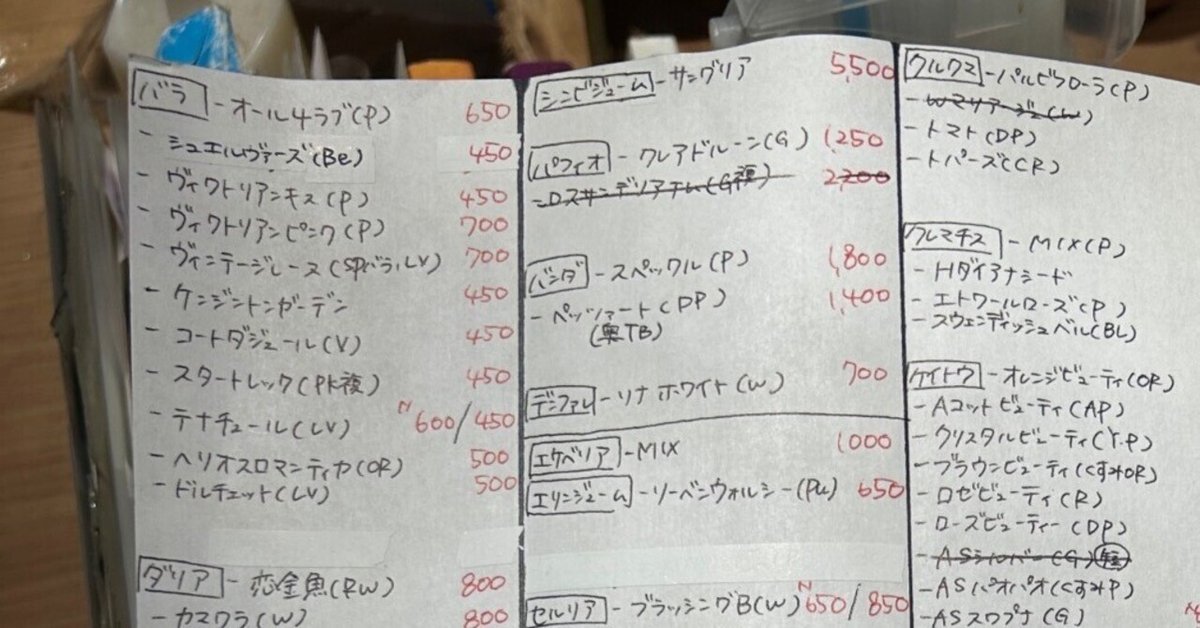 バラ - オール4ラブ(P) 650
- シュエルヴァーズ(Be) 450
- ヴィクトリアンキス(P) 450
- ヴィクトリアンピンク(P) 700
- ヴィンテージレース(SPバラ,LV) 700
- ケンジントンガーデン 450
- コートダジュール(V) 450
- スタートレック(PK複) 450
- テナチュール(LV) N600/450
- ヘリオスロマンティカ(OR) 500
- ドルチェット(LV) 500
ダリア - 恋金魚(RW) 800
- カマクラ(W) 800
シンビジューム - サングリア 5,500
パフィオ - クレアドルーン(G) 1,250
- ロスサンデリアナム(G複) 2,200
バンダ - スペックル(P) 1,800
- ペッツァート(DP) 1,400
(奥TB)
デンファレ - ソナホワイト(W) 700
エケベリア - MIX 1,000
エリンジューム - リーベンウォルシー(Pu) 650
セルリア - ブラッシングB(W) N650/850
クルクマ - パルビフローラ(P)
- Wマリアージュ(W)
- トマト(DP)
- トパーズ(CR)
クレマチス - MIX(P)
- Hダイアナシード
- エトワールローズ(P)
- スウェンディッシュベル(BL)
ケイトウ - オレンジビューティ(OR)
- Aコットビューティ(AP)
- クリスタルビューティ(Y.P)
- ブラウンビューティ(くすみOR)
- ロゼビューティ(R)
- ローズビューティー(DP)
- ASシルバー(G)
- ASパオパオ(くすみP)
- ASスワプナ(G)